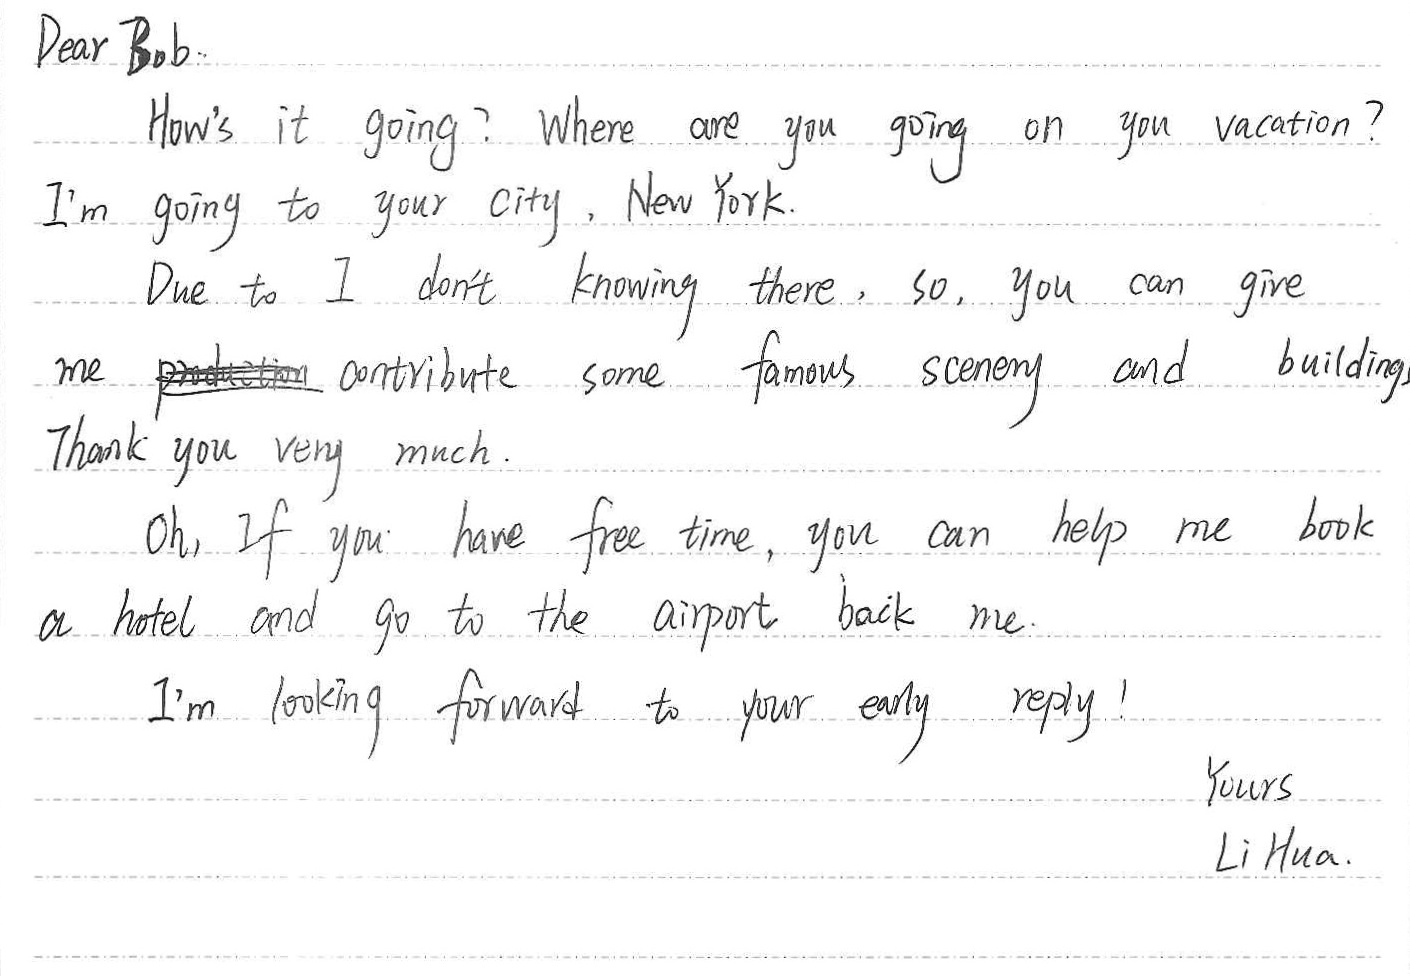 Dear Bob.
How's it going? Where are you going on you vacation?
I'm going to your city, New York.
Due to I don't knowing there, so, you can give
me contribute some famous scenery and buildings
Thank you very much.
Oh, If you have free time, you can help me book
a hotel and go to the airport back me.
I'm looking forward to your early reply!
Yours
Li Hua.